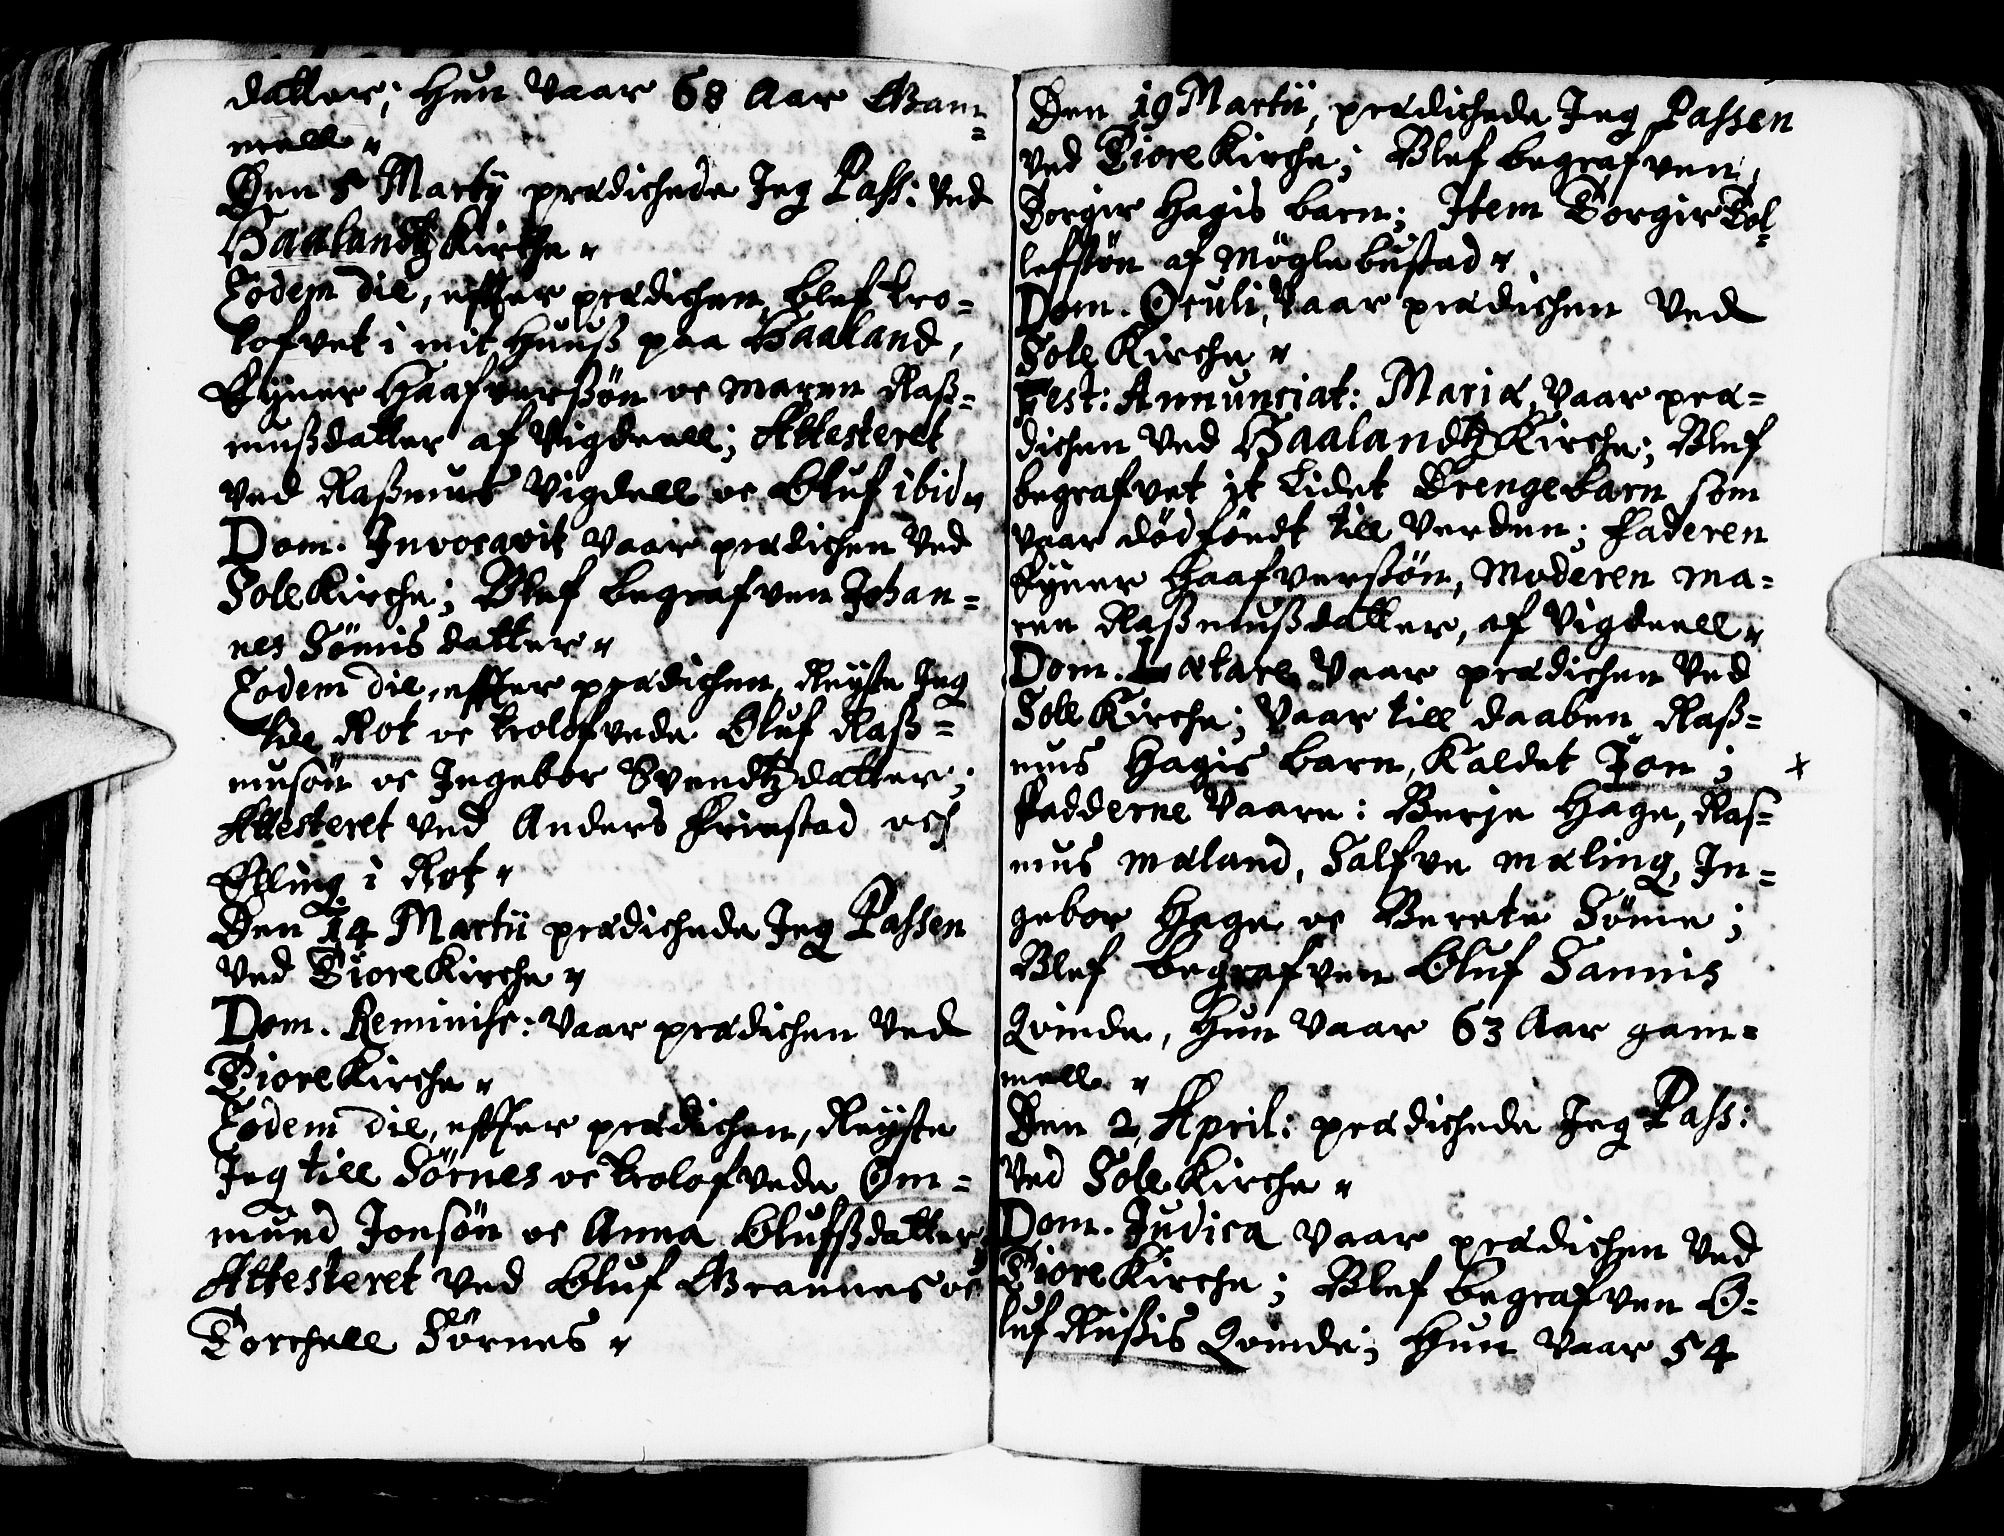 datter; Hun vaar 68 Aar Gam=
mell "
Den 5 Martij prædichede Jeg Pass: ved
Haalandtz Kirche "
Eodem die, effter prædichen, blef tro=
lofvet i mit Huuß paa Haaland,
Ejner Haafverßøn oc Maren Raß=
mußdatter af Vigdeell; Attesteret
ved Raßmus Vigdell oc Oluf ibid "
Dom. Invocavit vaar prædichen ved
Sole Kirche; Blef begrafven Johan=
nes Sømis datter "
Eodem die, effter prædichen, Reyste Jeg
till Rot oc trolofvede Oluf Raß=
musøn oc Ingebor Svendtzdatter;
Attesteret ved Anders Fristad och
Elling i Rot "
Den 14 Martii prædichede Jeg Passen
ved Tiore Kirche "
Dom. Reminisc: vaar prædichen ved
Tiore Kirche "
Eodem die, effter prædichen, Reyste
Jeg till Sørnes oc trolofvede Om=
mund Jonsøn oc Anna Olufßdatter;
Attesteret ved Oluf Grannes oc
Torchell Sørnes "
Den 19 Martii, prædichede Jeg Passen
ved Tiore Kirche; Blef begrafven,
Torgir Hagis barn; Item Torgir Tol=
lefsøn af Møglebustad "
Dom. Oculi, vaar prædichen ved
Sole Kirche "
Fest: Annunciat: Mariæ, vaar præ=
dichen ved Haalandtz Kirche; Blef
begrafvet it lidet Drengebarn som
vaar dødføedt till verden; Faderen
Ejner Haafverßøn, Moderen Ma=
ren Raßmußdatter, af Vigdeell "
Dom. Lætare vaar prædichen ved
Sole Kirche; Vaar till daaben Raß=
mus Hagis barn, Kaldet Jon; x
Fadderne vaare: Berje Hage, Ras=
mus Mæland, Salfve Mæling, In=
gebor Hage oc Berete Søme;
Blef begrafven Oluf Sannis
Qvinde, Hun vaar 63 Aar gam=
mell "
Den 2 April: prædichede Jeg Pass:
ved Sole Kirche "
Dom. Judica vaar prædichen ved
Tiore Kirche; Blef begrafven O=
luf Rußis Qvinde; Hun vaar 54